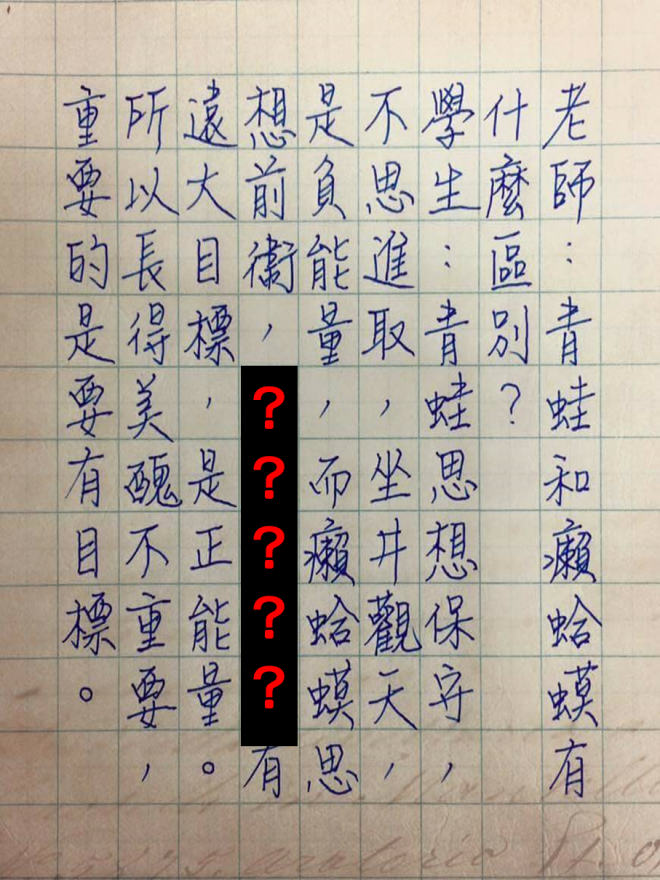 老師：青蛙和癩蛤蟆有
什麼區別？
學生：青蛙思想保守，
不思進取，坐井觀天，
是負能量，而癩蛤蟆思
想前衛，？？？？？有
遠大目標，是正能量。
所以長得美醜不重要，
重要的是要有目標。